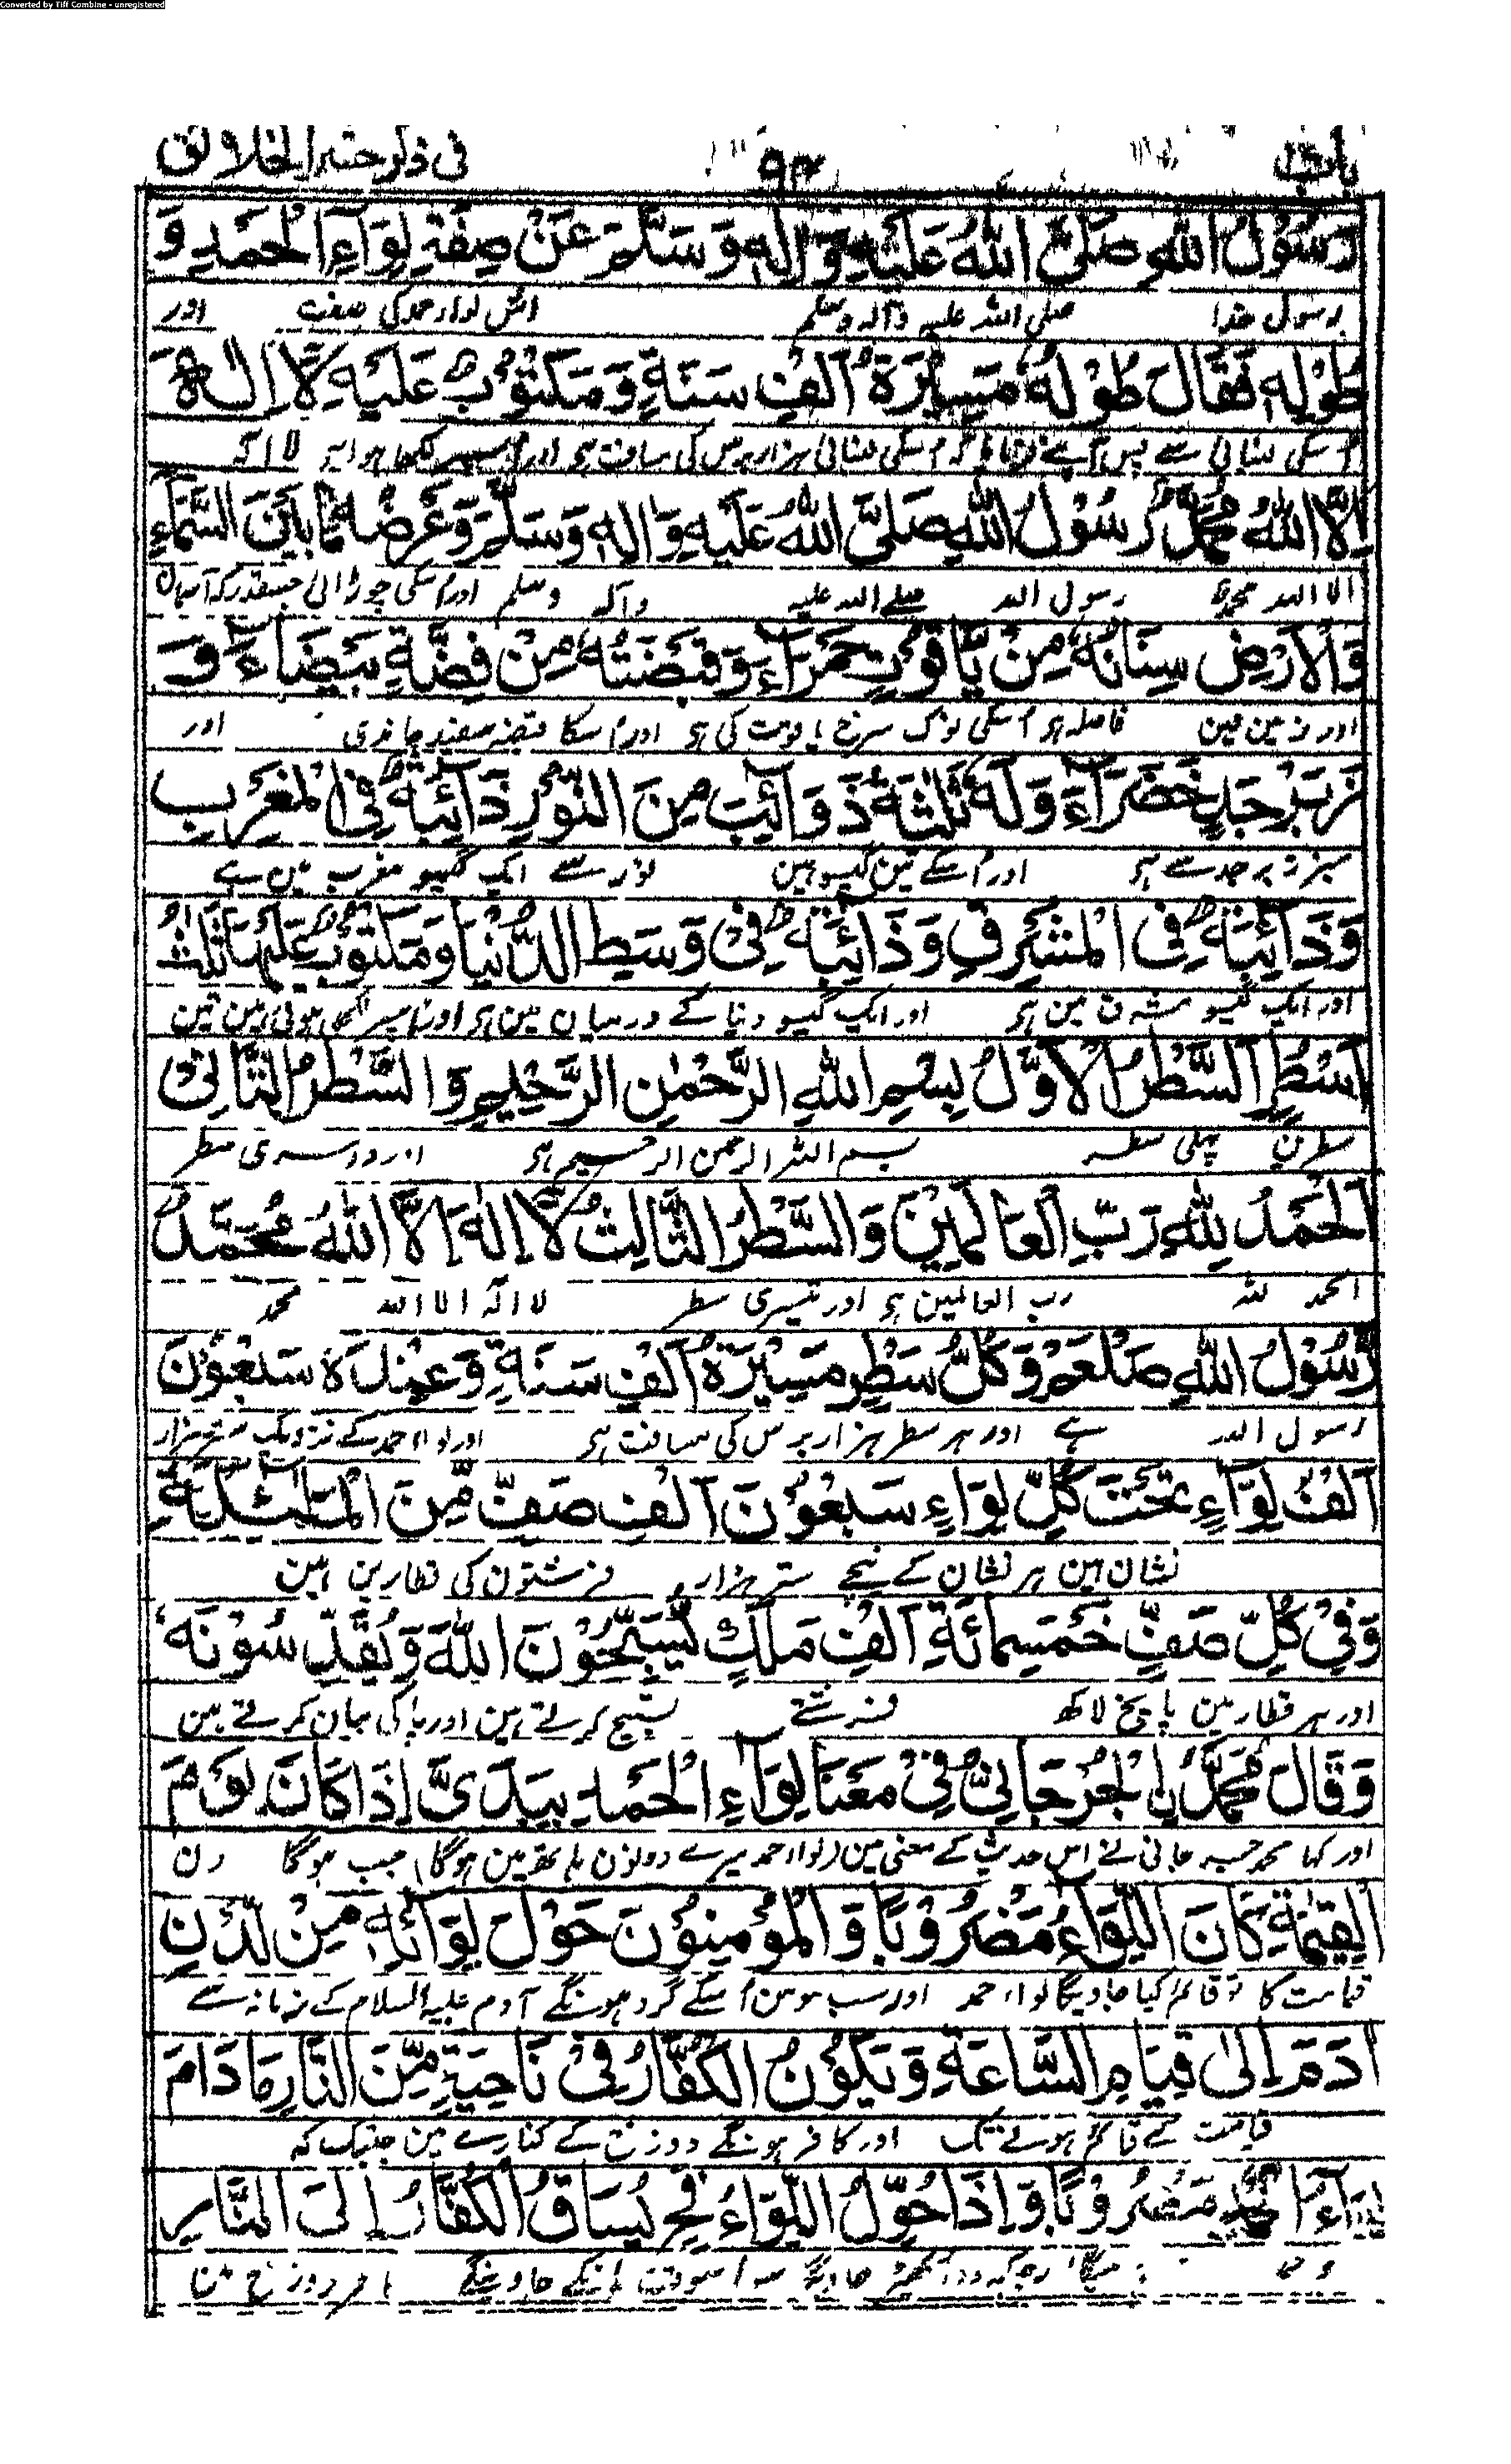 Converted by Tiff Combine - unregistered
باب ٩٢ فی ذکر حشر الخلائق
رَسُوْلُ اللّٰهِ صَلَّى اللّٰهُ عَلَيْهِ وَاٰلِهٖ وَسَلَّمَ عَنْ صِفَةِ لِوَآءِ الْحَمْدِ وَ
رسول خدا صلی اللہ علیہ وآلہ وسلم لواء حمد کی صفت اور
طُوْلِهٖ فَقَالَ طُوْلُهٗ مَسِيْرَةُ اَلْفِ سَنَةٍ وَمَكْتُوْبٌ عَلَيْهِ لَا اِلٰهَ
اُسکی لنبائی سے پس آپنے فرمایا کہ اُسکی لنبائی ہزار برس کی مسافت ہی اور اُسپر لکھا ہوا ہی لا الہ
اِلَّا اللّٰهُ مُحَمَّدٌ رَّسُوْلُ اللّٰهِ صَلَّى اللّٰهُ عَلَيْهِ وَاٰلِهٖ وَسَلَّمَ وَعَرْضُهٗ مَا بَيْنَ السَّمَآءِ
الا اللہ محمد رسول اللہ صلے اللہ علیہ وآلہ وسلم اور اُسکی چوڑائی جسقدر کہ آسمان
وَالْاَرْضِ سِنَانُهٗ مِنْ يَّاقُوْتٍ حَمْرَآءَ وَقَبْضَتُهٗ مِنْ فِضَّةٍ بَيْضَآءَ وَ
اور زمین مین فاصلہ ہو اُسکی نوک سرخ یاقوت کی ہی اور اُسکا قبضہ سفید چاندی اور
زَبَرْجَدٍ خَضْرَآءَ وَلَهٗ ثَلٰثَةُ ذَوَآئِبَ مِنَ النُّوْرِ ذَآئِبَةٌ فِى الْمَغْرِبِ
سبز زبرجد سے ہی اور اُسکے تین گیسو ہین نور سے ایک گیسو مغرب مین ہے
وَذَآئِبَةٌ فِى الْمَشْرِقِ وَذَآئِبَةٌ فِىْ وَسَطِ الدُّنْيَا وَمَكْتُوْبٌ عَلَيْهَا ثَلٰثُ
اور ایک گیسو مشرق مین ہی اور ایک گیسو دنیا کے درمیان مین ہی اور اُسپر لکھی ہوئی ہین تین
اَسْطُرٍ اَلسَّطْرُ الْاَوَّلُ بِسْمِ اللّٰهِ الرَّحْمٰنِ الرَّحِيْمِ وَالسَّطْرُ الثَّانِىْ
سطرین پہلی سطر بسم اللہ الرحمن الرحیم ہی اور دوسری سطر
اَلْحَمْدُ لِلّٰهِ رَبِّ الْعَالَمِيْنَ وَالسَّطْرُ الثَّالِثُ لَا اِلٰهَ اِلَّا اللّٰهُ مُحَمَّدٌ
الحمد للہ رب العالمین ہی اور تیسری سطر لا الہ الا اللہ محمد
رَّسُوْلُ اللّٰهِ صَلْعَمْ وَكُلُّ سَطْرٍ مَسِيْرَةُ اَلْفِ سَنَةٍ وَعِنْدَهٗ سَبْعُوْنَ
رسول اللہ ہے اور ہر سطر ہزار برس کی مسافت ہی اور لواء حمد کے نزدیک ستر ہزار
اَلْفَ لِوَآءٍ تَحْتَ كُلِّ لِوَآءٍ سَبْعُوْنَ اَلْفَ صَفٍّ مِّنَ الْمَلٰئِكَةِ
نشان ہین ہر نشان کے نیچے ستر ہزار فرشتون کی قطارین ہین
وَفِىْ كُلِّ صَفٍّ خَمْسُمِائَةِ اَلْفِ مَلَكٍ يُّسَبِّحُوْنَ اللّٰهَ وَيُقَدِّسُوْنَهٗ
اور ہر قطار مین پانچ لاکھ فرشتے تسبیح کرتے ہین اور پاکی بیان کرتے ہین
وَقَالَ مُحَمَّدُ نِ الْجُرْجَانِىُّ فِىْ مَعْنَا لِوَآءِ الْحَمْدِ بِيَدَىَّ اِذَا كَانَ يَوْمَ
اور کہا محمد جرجانی نے اس حدیث کے معنی مین (لواء حمد میرے دونون ہاتھ مین ہوگا) جب ہوگا دن
الْقِيٰمَةِ كَانَ اللِّوَآءُ مَضْرُوْبًا وَالْمُؤْمِنُوْنَ حَوْلَ لِوَآئِهٖ مِنْ لَّدُنْ
قیامت کا تو قائم کیا جاویگا لواء حمد اور سب مومن اُسکے گرد ہونگے آدم علیہ السلام کے زمانہ سے
اٰدَمَ اِلٰى قِيَامِ السَّاعَةِ وَيَكُوْنُ الْكُفَّارُ فِىْ نَاحِيَةٍ مِّنَ النَّارِ مَا دَامَ
قیامت کے قائم ہونے تک اور کافر ہونگے دوزخ کے کنارے مین جبتک کہ
لِوَآءُ الْحَمْدِ مَضْرُوْبًا وَّاِذَا حُوِّلَ اللِّوَآءُ فَحِ يُسَاقُ الْكُفَّارُ اِلَى النَّارِ